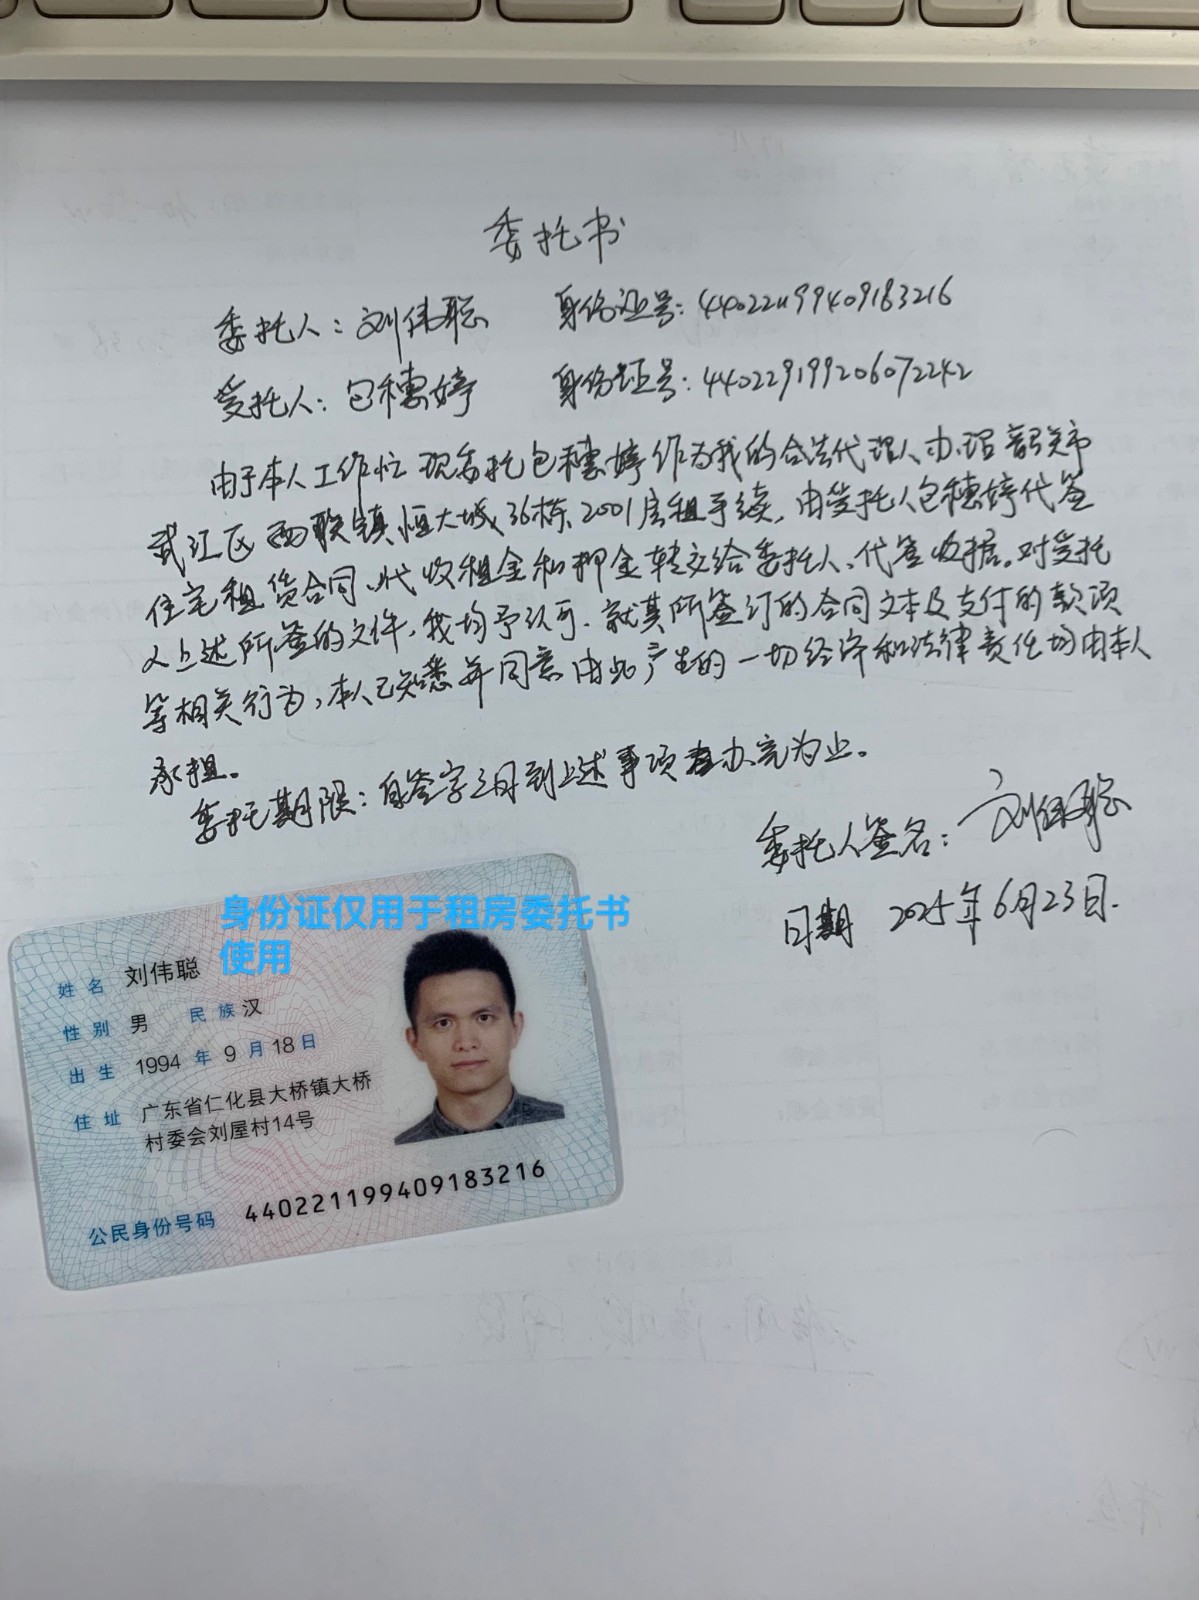 委托书
委托人：刘伟聪 身份证号：440221199409183216
受托人：包穗婷 身份证号：440229199206072242
由于本人工作忙 现委托包穗婷作为我的合法代理人办理韶关市
武江区西联镇恒大城36栋2001房租手续，由受托人包穗婷代签
住宅租赁合同、代收租金和押金转交给委托人、代签收据。对受托
人上述所签的文件，我均予认可．就其所签订的合同文本及支付的款项
等相关行为，本人已知悉并同意由此产生的一切经济和法律责任均由本人
承担。
委托期限：自签字之日到上述事项办完为止。
委托人签名：刘伟聪
日期 2025年6月23日.
身份证仅用于租房委托书
使用
姓名 刘伟聪
性别 男 民族 汉
出生 1994 年 9 月 18 日
住址 广东省仁化县大桥镇大桥
村委会刘屋村14号
公民身份号码 440221199409183216